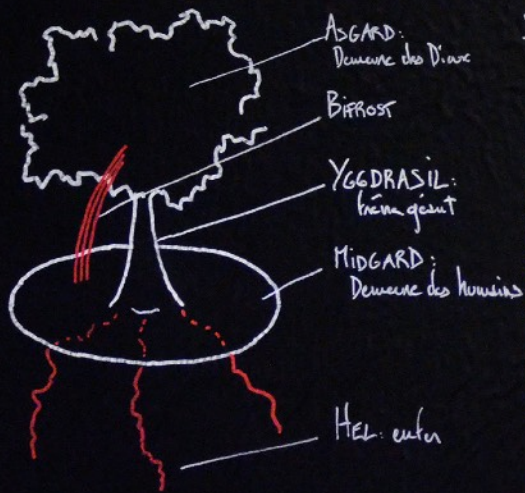 ASGARD:
Demeure des Dieux
BIFROST
YGGDRASIL:
frêne géant
MIDGARD:
Demeure des humains
HEL: enfer